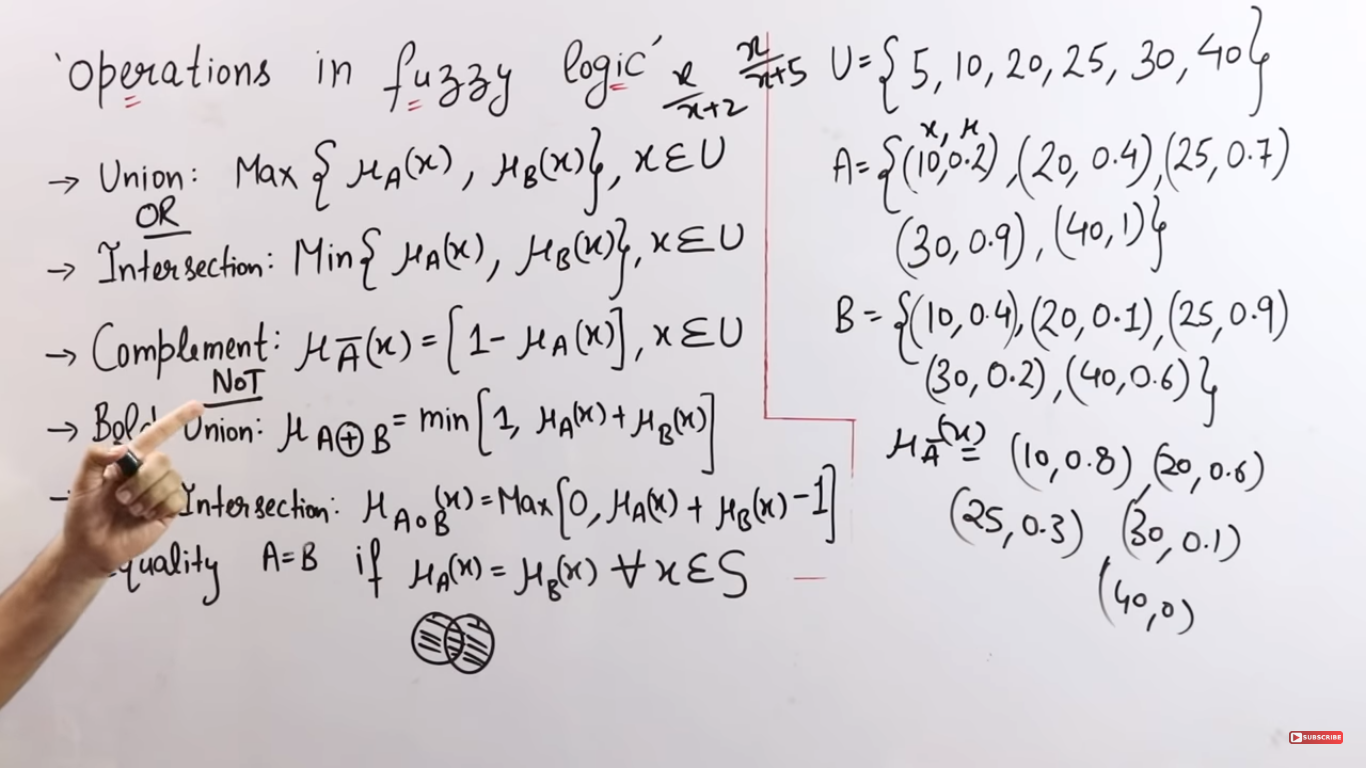 'operations in fuzzy logic'
x/x+2
x/x+5
→ Union: Max { μA(x), μB(x)}, x ∈ U
OR
→ Intersection: Min{ μA(x), μB(x)}, x ∈ U
→ Complement: μĀ(x) = [1- μA(x)], x ∈ U
NOT
→ Bold Union: μA⊕B = min [1, μA(x) + μB(x)]
Intersection: μA∘B(x) = Max [0, μA(x) + μB(x) -1]
quality A=B if μA(x) = μB(x) ∀ x ∈ S
U = {5, 10, 20, 25, 30, 40}
x, μ
A = {(10,0.2), (20, 0.4), (25, 0.7)
(30, 0.9), (40, 1)}
B = {(10, 0.4), (20, 0.1), (25, 0.9)
(30, 0.2), (40, 0.6)}
μĀ(x) = (10, 0.8), (20, 0.6)
(25, 0.3) (30, 0.1)
(40, 0)
SUBSCRIBE